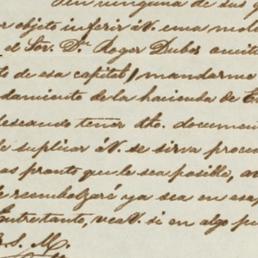 en ninguna de sus
objeto inferir á V. una mole
el Sor. Dn. Roger Dubos
de esa capital, mandarme
damiento de la hacienda de
deseando tener dho. documen
suplicar á V. se sirva proc
as pronto que le sea posible, a
reembolzaré ya sea en esa
Entretanto, vea V. si en algo p
B. S. M.